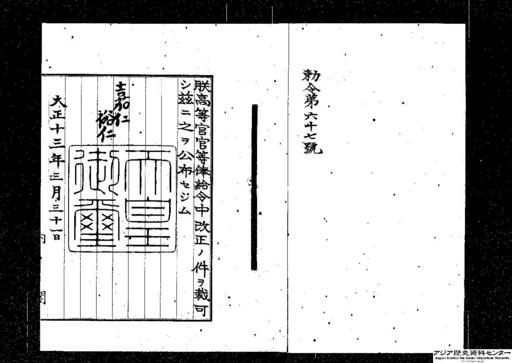 勅令第六十七號
朕高等官官等俸給令中改正ノ件ヲ裁可
シ茲ニ之ヲ公布セシム
嘉仁
裕仁
天皇
御璽
大正十三年三月三十一日
内閣
アジア歴史資料センター
Japan Center for Asian Historical Records